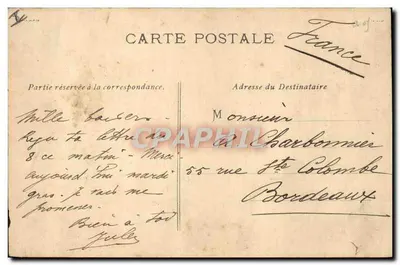 CARTE POSTALE
France
Partie réservée à la correspondance.
Adresse du Destinataire
Mille baisers
Reçu ta lettre du
8 ce matin - Merci
aujourd'hui mardi
gras. Je vais me
promener.
Bien à toi
Jules
Monsieur
Charbonnier
55 rue Ste Colombe
Bordeaux
CPAPHIL.com